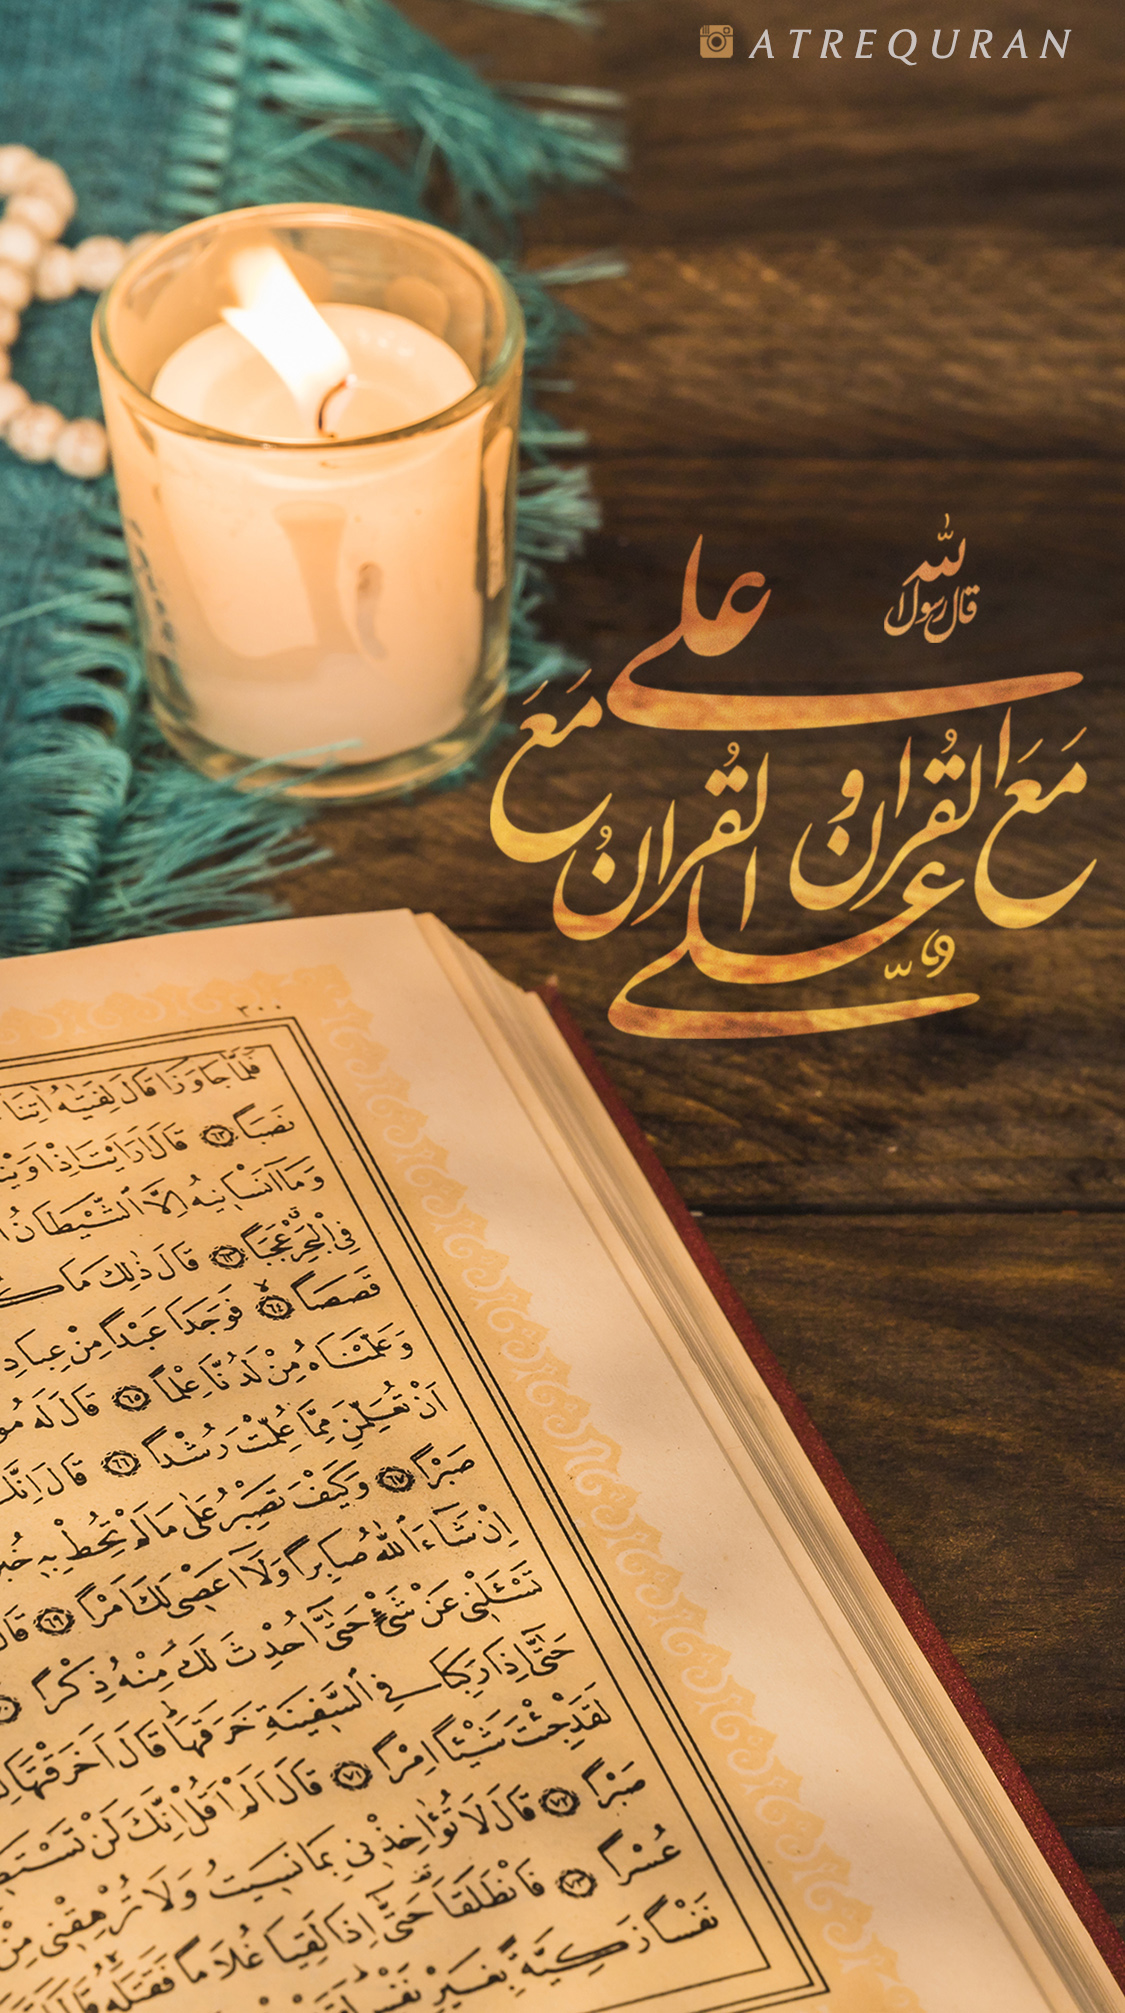 ATREQURAN
قال رسول الله
علی مع القران و القران مع علی
٣٠٠
فَلَمَّا جَاوَزَا قَالَ لِفَتٰيهُ اٰتِنَا
نَصَبًا ﴿٦٢﴾ قَالَ اَرَاَيْتَ اِذْ اَوَيْنَا
وَمَٓا اَنْسَانِيهُ اِلَّا الشَّيْطَانُ
فِى الْبَحْرِ عَجَبًا ﴿٦٣﴾ قَالَ ذٰلِكَ مَا
قَصَصًا ﴿٦٤﴾ فَوَجَدَا عَبْدًا مِنْ عِبَادِ
وَعَلَّمْنَاهُ مِنْ لَدُنَّا عِلْمًا ﴿٦٥﴾ قَالَ لَهُ
اَنْ تُعَلِّمَنِ مِمَّا عُلِّمْتَ رُشْدًا ﴿٦٦﴾ قَالَ اِنَّكَ
صَبْرًا ﴿٦٧﴾ وَكَيْفَ تَصْبِرُ عَلٰى مَا لَمْ تُحِطْ بِهِ
اِنْ شَٓاءَ اللّٰهُ صَابِرًا وَلَٓا اَعْصِى لَكَ اَمْرًا ﴿٦٩﴾ قَالَ
تَسْـَٔلْنِى عَنْ شَىْءٍ حَتّٰٓى اُحْدِثَ لَكَ مِنْهُ ذِكْرًا
حَتّٰٓى اِذَا رَكِبَا فِى السَّفِينَةِ خَرَقَهَا قَالَ اَخَرَقْتَهَا
لَقَدْ جِئْتَ شَيْـًٔا اِمْرًا ﴿٧١﴾ قَالَ اَلَمْ اَقُلْ اِنَّكَ لَنْ
صَبْرًا ﴿٧٢﴾ قَالَ لَا تُؤَاخِذْنِى بِمَا نَسِيتُ وَلَا تُرْهِقْنِى مِنْ
عُسْرًا ﴿٧٣﴾ فَانْطَلَقَا حَتّٰٓى اِذَا لَقِيَا غُلَامًا فَقَتَلَهُ قَالَ
نَفْسًا زَكِيَّةً بِغَيْرِ نَفْسٍ